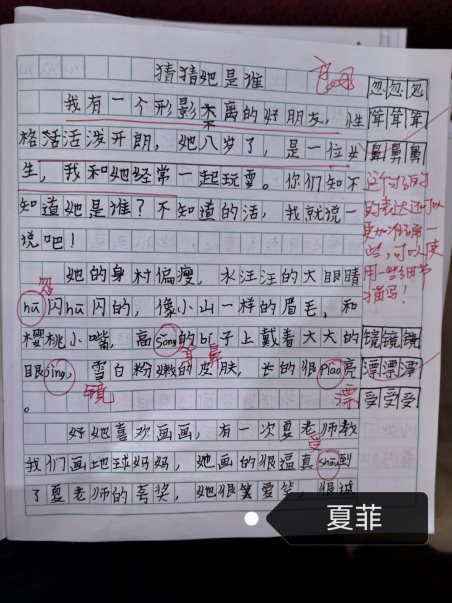 猜猜她是谁
我有一个形影不离的好朋友，性
格活活泼开朗，她八岁了，是一位女
生，我和她经常一起玩耍。你们知不
知道她是谁？不知道的活，我就说一
说吧！
她的身材偏瘦，水汪汪的大眼睛
hū闪hū闪的，像小山一样的眉毛，和
樱桃小嘴，高sǒng的bí子上戴着大大的
眼jìng，雪白粉嫩的皮肤，长的很piào亮
。
好她喜欢画画，有一次夏老师教
我们画地球妈妈，她画的很逼真shòu到
了夏老师的夸奖，她很爱笑，很诚
忽忽忽
耸耸耸
鼻鼻鼻
镜镜镜
漂漂漂
受受受
忽
耸鼻
镜
漂
受
夏菲